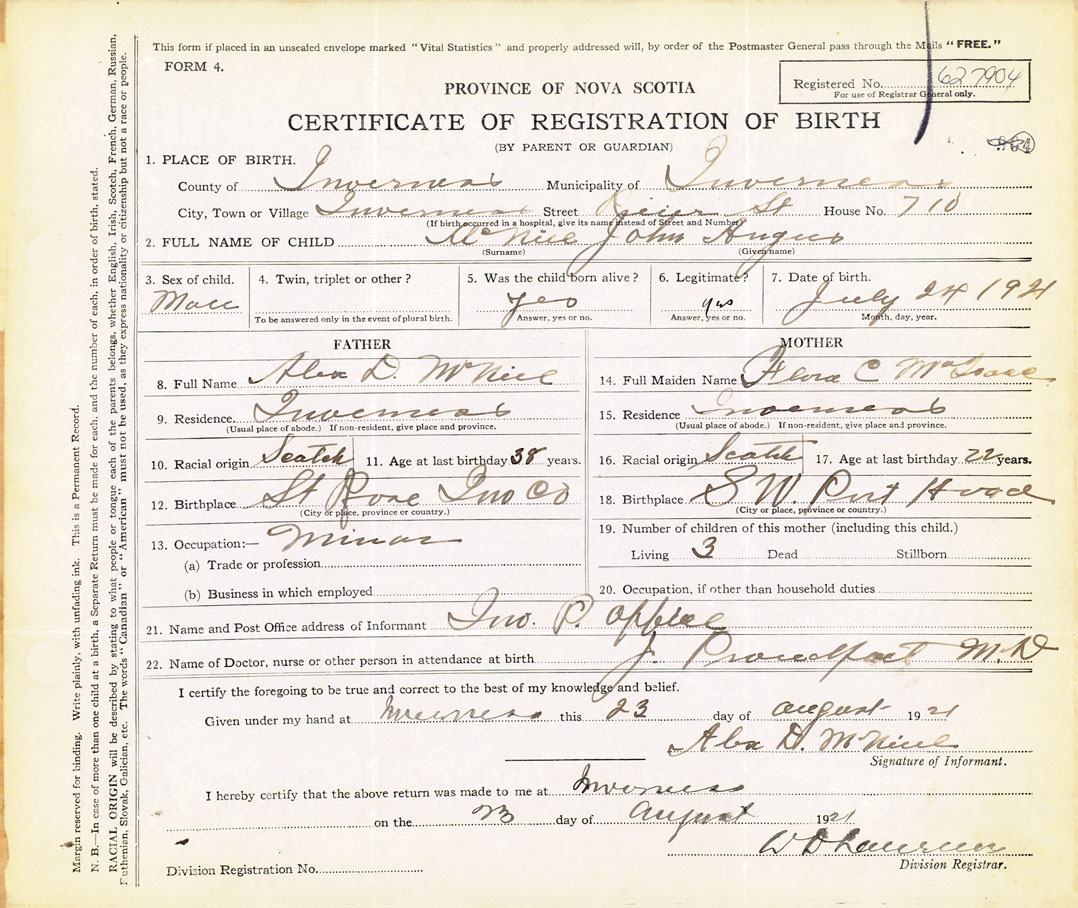 This form if placed in an unsealed envelope marked "Vital Statistics" and properly addressed will, by order of the Postmaster General pass through the Mails "FREE."
FORM 4.
Registered No. 627904
For use of Registrar General only.
PROVINCE OF NOVA SCOTIA
CERTIFICATE OF REGISTRATION OF BIRTH
(BY PARENT OR GUARDIAN)
1. PLACE OF BIRTH.
County of Inverness Municipality of Inverness
City, Town or Village Inverness Street St House No. 710
(If birth occurred in a hospital, give its name instead of Street and Number)
2. FULL NAME OF CHILD McNeil John Angus
(Surname) (Given name)
3. Sex of child. 4. Twin, triplet or other? 5. Was the child born alive? 6. Legitimate? 7. Date of birth.
Male yes yes July 24 1921
To be answered only in the event of plural birth. Answer, yes or no. Answer, yes or no. Month, day, year.
FATHER
8. Full Name Alex D. McNeil
9. Residence. Inverness
(Usual place of abode.) If non-resident, give place and province.
10. Racial origin Scotch 11. Age at last birthday 38 years.
12. Birthplace St Rose Inv Co
(City or place, province or country.)
13. Occupation:— Minor
(a) Trade or profession
(b) Business in which employed
MOTHER
14. Full Maiden Name Flora C McIsaac
15. Residence Inverness
(Usual place of abode.) If non-resident, give place and province.
16. Racial origin Scotch 17. Age at last birthday 22 years.
18. Birthplace S W. Port Hood
(City or place, province or country.)
19. Number of children of this mother (including this child.)
Living 3 Dead Stillborn
20. Occupation, if other than household duties
21. Name and Post Office address of Informant Inv. P. Office
22. Name of Doctor, nurse or other person in attendance at birth J. Proudfoot M.D
I certify the foregoing to be true and correct to the best of my knowledge and belief.
Given under my hand at Inverness this 23 day of august 1921
Alex D. McNeil
Signature of Informant.
I hereby certify that the above return was made to me at Inverness
on the 23 day of august 1921
W D Lawrence
Division Registrar.
Division Registration No.
Margin reserved for binding. Write plainly, with unfading ink. This is a Permanent Record.
N. B.—In case of more than one child at a birth, a Separate Return must be made for each, and the number of each, in order of birth, stated.
RACIAL ORIGIN will be described by stating to what people or tongue each of the parents belongs, whether English, Irish, Scotch, French, German, Russian,
Ruthenian, Slovak, Galician, etc. The words "Canadian" or "American" must not be used, as they express nationality or citizenship but not a race or people.